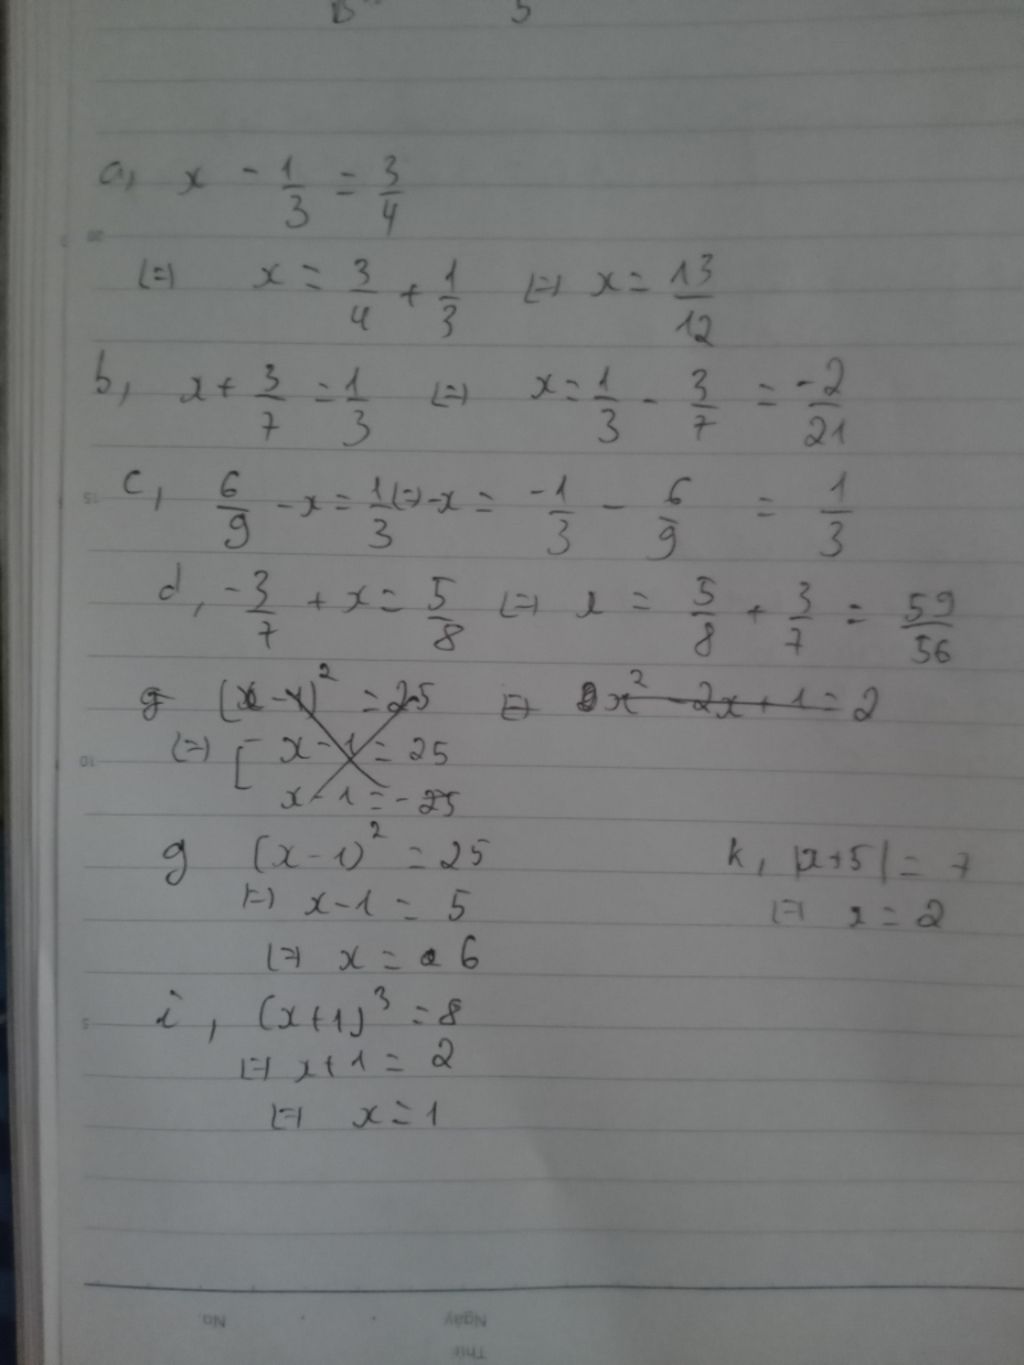 a, x - 1/3 = 3/4
(=) x = 3/4 + 1/3 (=) x = 13/12
b, x + 3/7 = 1/3 (=) x = 1/3 - 3/7 = -2/21
c, 6/9 - x = 1/3 (=) -x = -1/3 - 6/9 = 1/3
d, -3/7 + x = 5/8 (=) x = 5/8 + 3/7 = 59/56
g (x-1)² = 25 (=) x² - 2x + 1 = 2
(=) [ x - 1 = 25
x - 1 = -25
g (x-1)² = 25 k, |x+5| = 7
(=) x - 1 = 5 (=) x = 2
(=) x = 6
i, (x+1)³ = 8
(=) x + 1 = 2
(=) x = 1
20
15
10
5
No.
Ngày
Thứ